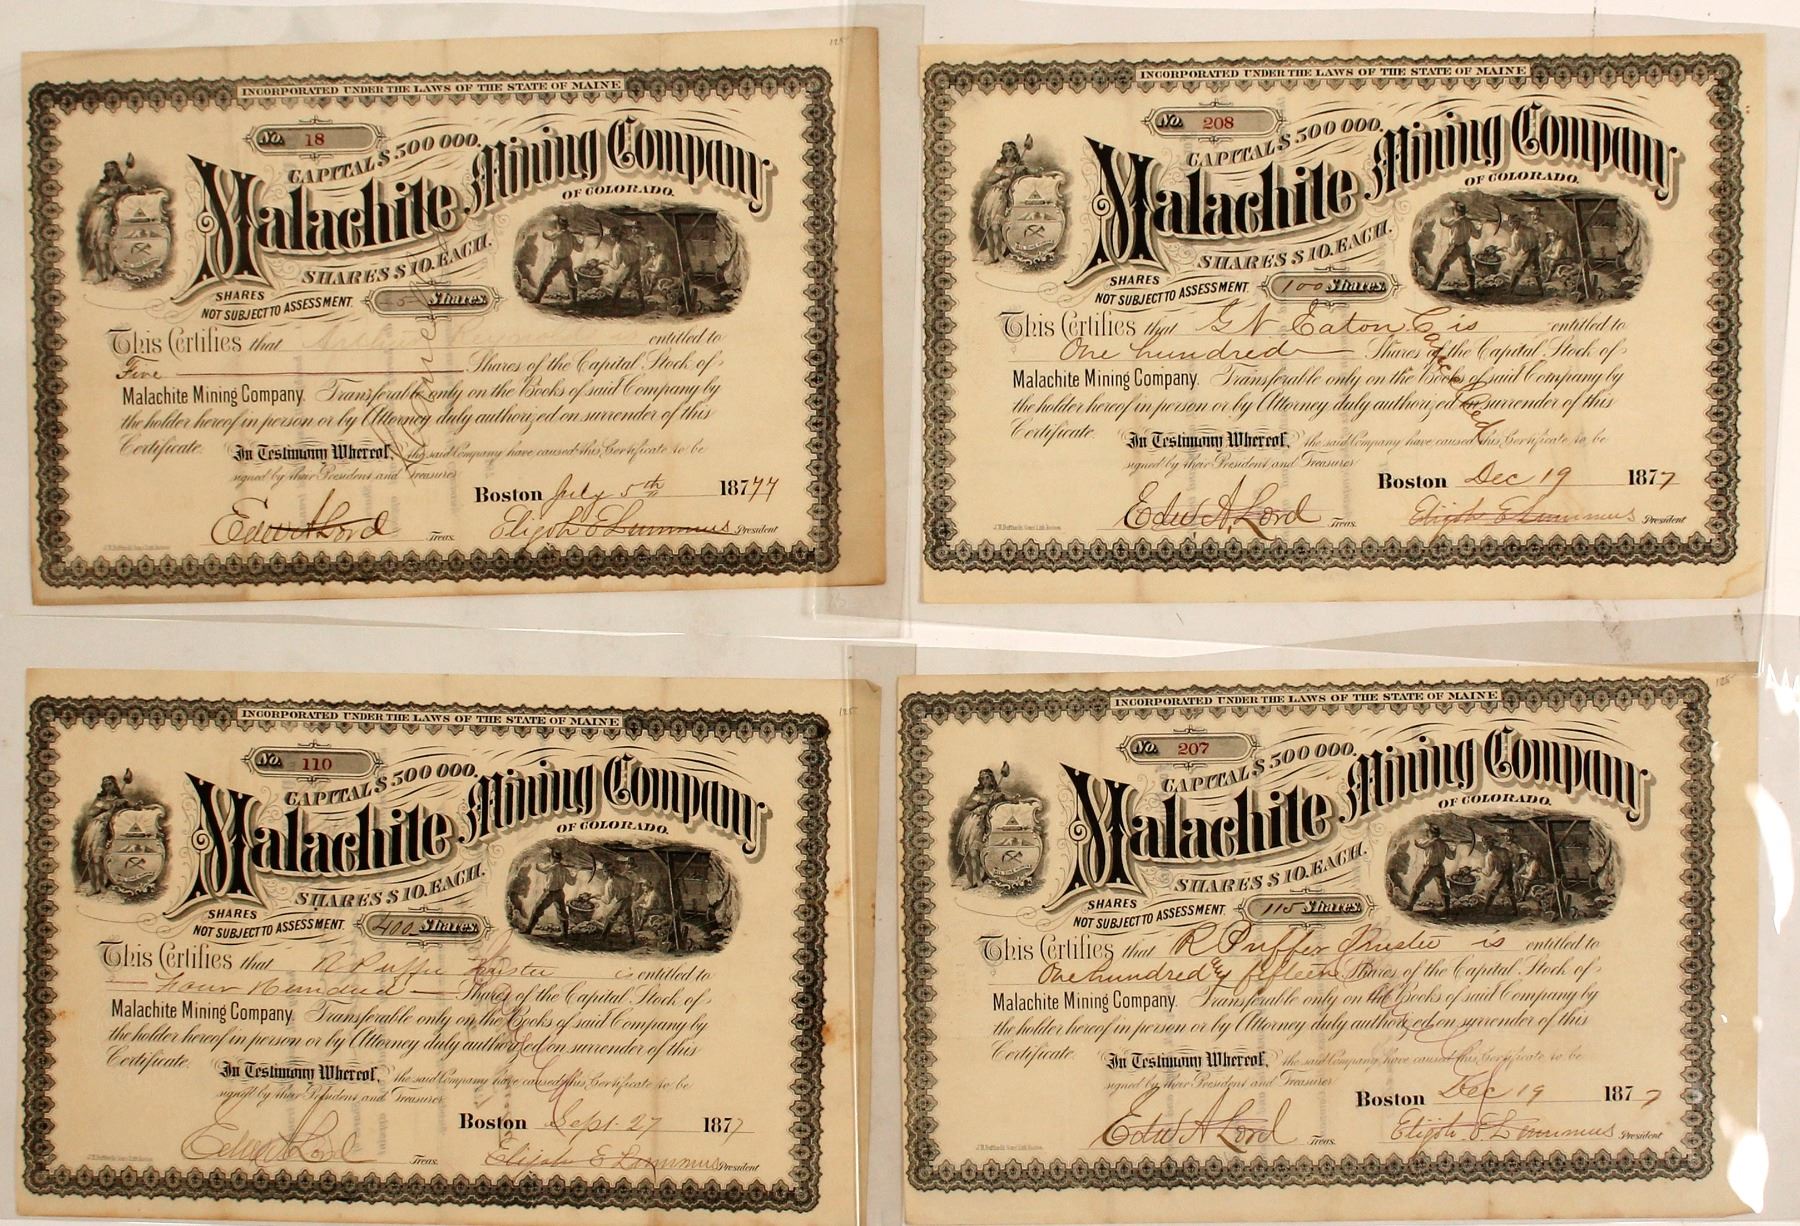 125
INCORPORATED UNDER THE LAWS OF THE STATE OF MAINE
No. 18
CAPITAL $ 500 000.
Malachite Mining Company
OF COLORADO.
SHARES $ 10. EACH.
SHARES
NOT SUBJECT TO ASSESSMENT.
-5- Shares.
This Certifies that entitled to
Five Shares of the Capital Stock of
Malachite Mining Company. Transferable only on the Books of said Company by
the holder hereof in person or by Attorney duly authorized on surrender of this
Certificate.
In Testimony Whereof, the said Company have caused this Certificate to be
signed by their President and Treasurer
Boston July 5th 1877
Edw A Lord Treas. Elijah E Lummus President
INCORPORATED UNDER THE LAWS OF THE STATE OF MAINE
No. 208
CAPITAL $ 500 000.
Malachite Mining Company
OF COLORADO.
SHARES $ 10. EACH.
SHARES
NOT SUBJECT TO ASSESSMENT.
100 Shares.
This Certifies that G N Eaton is entitled to
One hundred Shares of the Capital Stock of
Malachite Mining Company. Transferable only on the Books of said Company by
the holder hereof in person or by Attorney duly authorized on surrender of this
Certificate.
Cancelled
In Testimony Whereof, the said Company have caused this Certificate to be
signed by their President and Treasurer
Boston Dec 19 1877
Edw A Lord Treas. Elijah E Lummus President
125
INCORPORATED UNDER THE LAWS OF THE STATE OF MAINE
No. 110
CAPITAL $ 500 000.
Malachite Mining Company
OF COLORADO.
SHARES $ 10. EACH.
SHARES
NOT SUBJECT TO ASSESSMENT.
400 Shares.
This Certifies that R Puffer Trustee is entitled to
Four Hundred Shares of the Capital Stock of
Malachite Mining Company. Transferable only on the Books of said Company by
the holder hereof in person or by Attorney duly authorized on surrender of this
Certificate.
In Testimony Whereof, the said Company have caused this Certificate to be
signed by their President and Treasurer
Boston Sept. 27 1877
Edw A Lord Treas. Elijah E Lummus President
125
INCORPORATED UNDER THE LAWS OF THE STATE OF MAINE
No. 207
CAPITAL $ 500 000.
Malachite Mining Company
OF COLORADO.
SHARES $ 10. EACH.
SHARES
NOT SUBJECT TO ASSESSMENT.
115 Shares.
This Certifies that R Puffer Trustee is entitled to
One hundred & fifteen Shares of the Capital Stock of
Malachite Mining Company. Transferable only on the Books of said Company by
the holder hereof in person or by Attorney duly authorized on surrender of this
Certificate.
In Testimony Whereof, the said Company have caused this Certificate to be
signed by their President and Treasurer
Boston Dec 19 1877
Edw A Lord Treas. Elijah E Lummus President